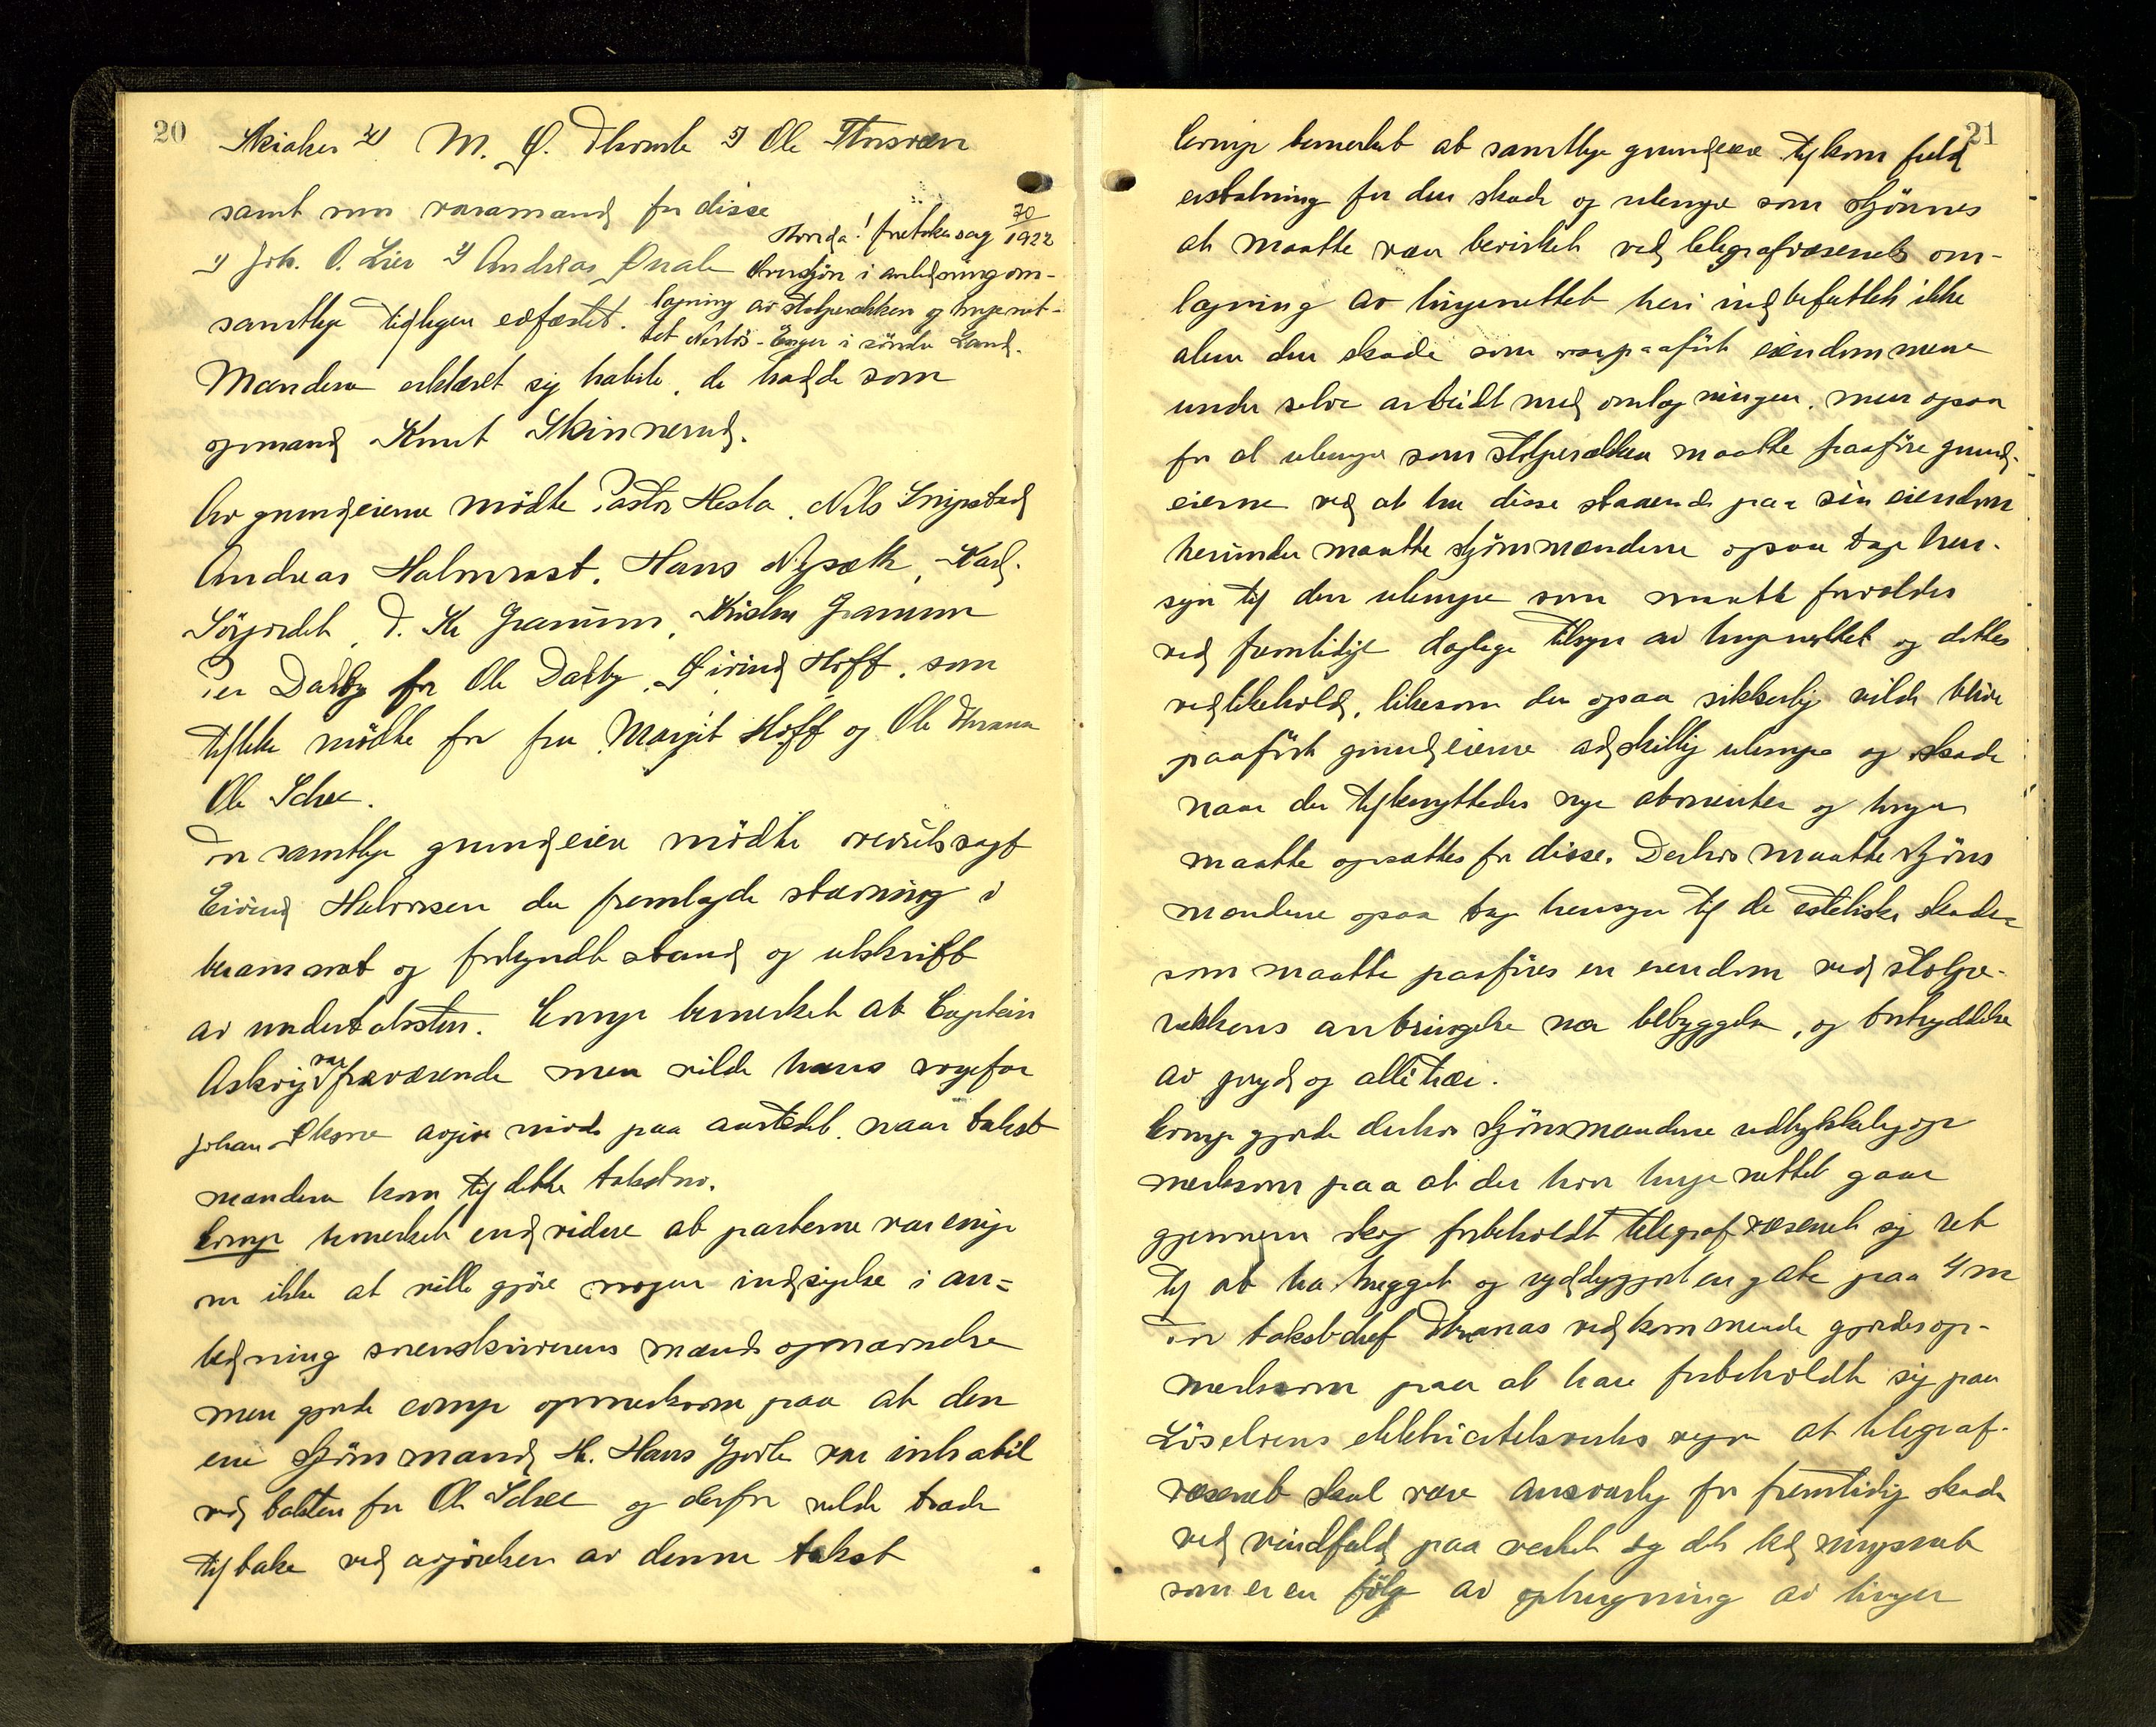 20
Skiaker 4) M. Ø. Thomle 5) Ole
samt som varamænd for disse
Hvorda! foretokes sag 70/1922
1) Joh. O. Lier 2) Andreas Qvale
Overskjøn i anledning om-
samtlige tidligere edfæstet.
lægning av stolperækken og linjenet-
tet - Enger i söndre Land.
Mændene erklæret sig habile, de hadde som
opmand Knut Skinnerud.
Av grundeierne mödte Pastor Hesla, Nils Snipstad
Andreas Halmrast, Hans Nysæth, Karl
Sörjordet, T. Kr Granum, Kristen Granum
Per Dalby for Ole Dalby, Eivind Hoff, som
tillike mödte for fru Margit Hoff og Ole Thrana
Ole Schee.
For samtlige grundeiere mödte overretssagf
Eivind Halvorsen der fremlagde stævning i
berammet og forkyndt stand og utskrift
av undertaksten. Comp bemerket at Captein
Askvig var fraværende men vilde hans
Johan avgive möte paa aastedet, naar takst
mændene kom til dette takstno.
Comp bemerket endvidere at parterne var enige
om ikke at ville gjöre nogen indsigelse i an=
ledning mænds opnævnelse
men gjorde comp opmerksom paa at den
ene skjönsmand H. Hans Gjerle var inhabil
ved taksten for Ole Schee og derfor vilde træde
tilbake ved avgjörelsen av denne takst
21
Comp bemerket at samtlige grundeiere tilkom fuld
erstatning for den skade og ulempe som skjönnes
at maatte være bevirket ved telegrafvæsenets om-
lægning av linjenettet heri indbefattet ikke
alene den skade som var paafört eiendommene
under selve arbeidet med omlægningen, men ogsaa
for al ulempe som stolperækken maatte paaföre grund-
eierne ved at ha disse staaende paa sin eiendom
herunder maatte skjönsmændene ogsaa tage hen-
syn til den ulempe som maatte forvoldes
ved fremtidige daglige tilsyn av linjenettet og dettes
vedlikehold, likesom der ogsaa sikkerlig vilde blive
paafört grundeierne adskillig ulempe og skade
naar der tilknyttedes nye abonenter og linjer
maatte opsættes for disse. Derhos maatte skjöns
mændene ogsaa tage hensyn til de estetiske skader
som maatte paaföres en eiendom ved stolpe-
rækkens anbringelse nær bebyggelse, og
av pryd og allétrær.
Comp gjorde derhos skjönsmændene udtrykkelig op
merksom paa at der hvor linje nettet gaar
gjennem skog forbeholdt telegrafvæsenet sig ret
til at ha hugget og ryddiggjort en gate paa 4 m
For takstchef Thranas vedkommende gjordes op-
merksom paa at han forbeholdt sig paa
Löselvens elektricitetsverks vegne at telegraf-
væsenet skal være ansvarlig for fremtidig skade
ved vindfald paa verket og det ledningsnet
som er en fölge av ophugning av linjer